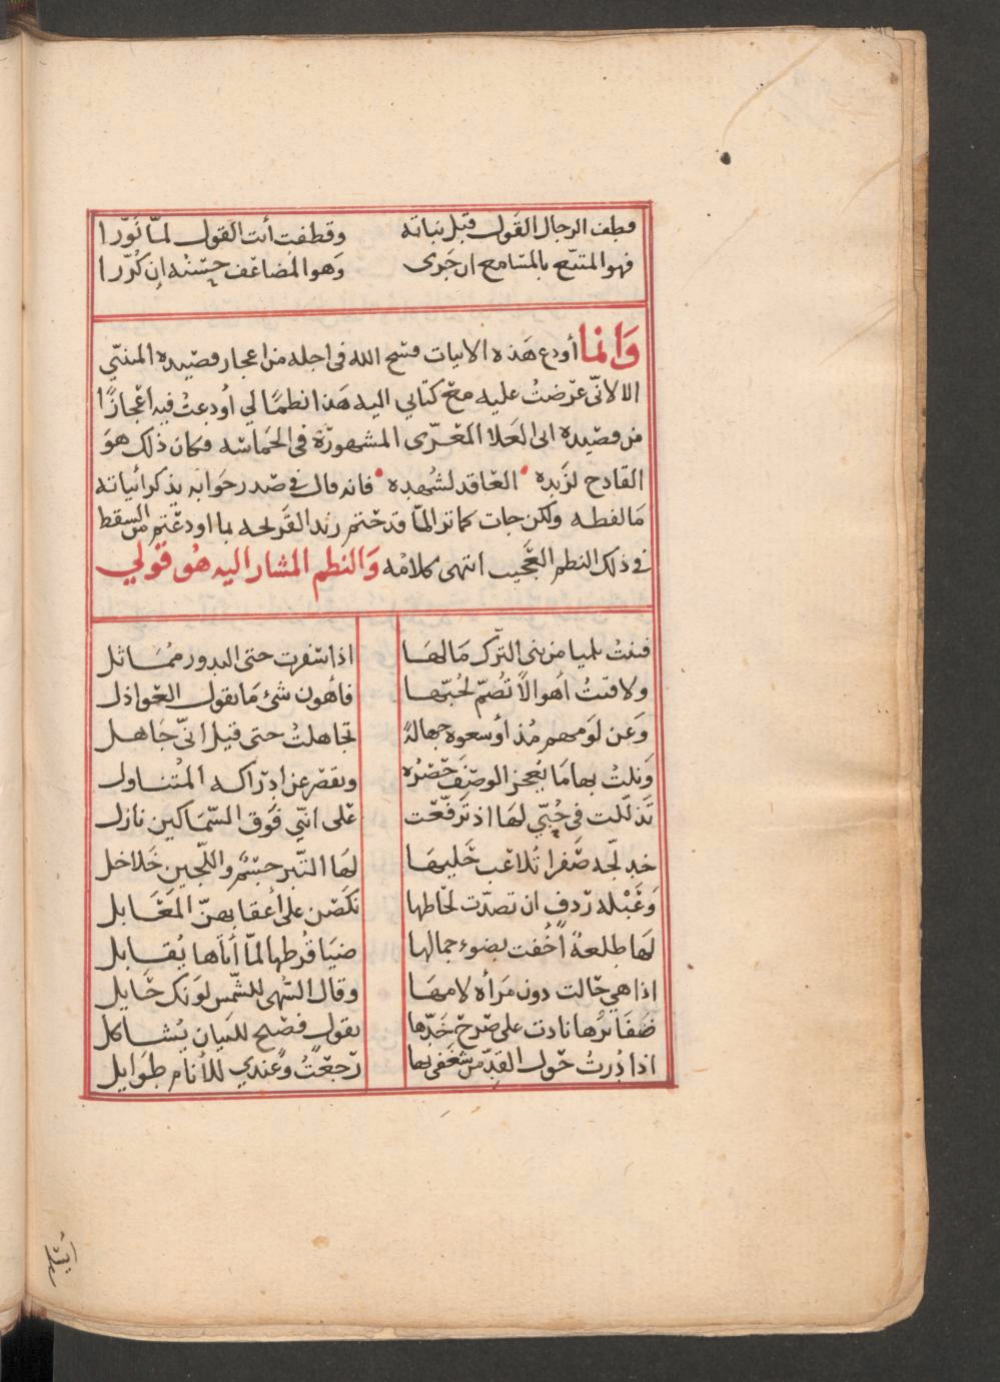 قطف الرجال القول قبل نباته وقطفت أنت القول لمّا نوّرا
فهو المتبّع بالمسامع ان جرى وهو المُضاعف حسْنه إن كُرّرا
وَانما أودع هَذه الابيات فسح الله فى اجله من اعجاز قصيدة المتنبّي
الا لانّى عرّضتُ عليه مع كتابي اليه هَذا نظمًا لي أودعتُ فيه اعْجازًا
من قصيدة ابى العَلا المعَرّى المشهورَة فى الحَماسَه فكان ذلك هوَ
القادح لزَنده العاقد لشُهده فانه قال في صَدر جَوابه بذكر أبياته
مَا لفظه ولكن جات كما تر المّا قدحْتم زند القَريحه بما اودعْتم من السقط
فى ذلك النظم العَجيب انتهى كلامُه وَالنظم المشار اليه هُو قولي
فتنتُ بلميا من بنى الترْك مَا لهَا اذا سَفرت حتى البدور ممَاثل
ولاقيتُ اَهوالاً تُصمّ لحُبّها فأهون شئ مَا يقول العَواذل
وَعن لومهم مُذ أوسعوه جهالةً تجاهلتُ حتى قيل انّى جَاهل
وَنلتُ بها مَا يُعجز الوصْفَ حَصْرُه ويقصر عن ادرَاكه المُتناول
تَذلّلت فى حُبّي لهَا اذ ترفّعَت عَلى انّني فوَق السّمَاكين نازل
خدلّجه صَفرا تُلاعب حَليهَا لهَا التّبر جسْمٌ واللّجين خَلاخل
وَعَبْله رَدفٍ ان تصدّت لحَاظها نكصْن على أعقابهنّ المعَابل
لهَا طلعةٌ أخفت بضوء جمالها ضيَا قُرطها لمّا أتاَها يُقابل
اذا هي حَالت دون مَرأه لامهَا وقال السُّهى للشّمس لونك حَايل
ضفَائرُها نادت على صَرح خَدّها يقول فصْيح للبَيان يُشاكل
اذا دُرتُ حَول القدّ من شغفى بها رَجعتُ وعندي للأنام طوَايل